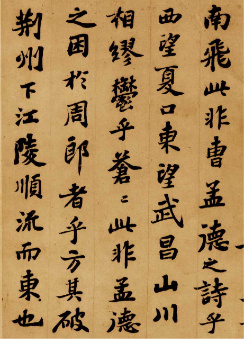 南飛此非曹孟德之詩乎
西望夏口東望武昌山川
相繆鬱乎蒼〻此非孟德
之困於周郎者乎方其破
荆州下江陵順流而東也